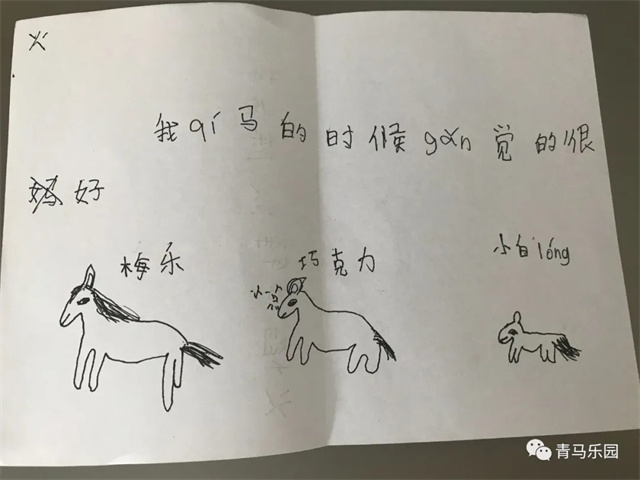 我qí马的时候gǎn觉的很
好
梅乐
巧克力
小白lóng
青马乐园